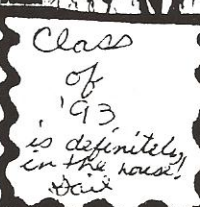 Class
of
'93
is definitely
in the house!
Gail